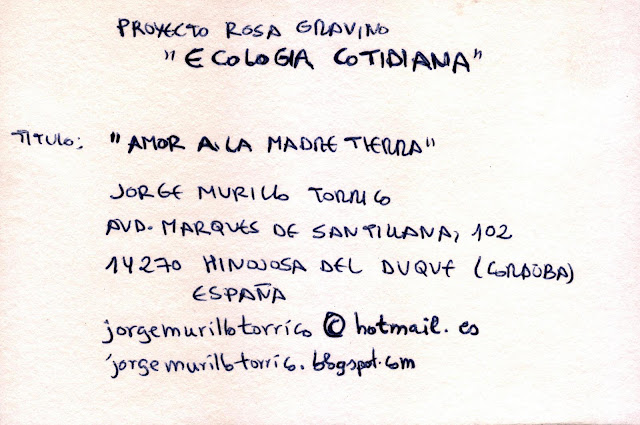 PROYECTO ROSA GRAVINO
"ECOLOGIA COTIDIANA"
TITULO: "AMOR A LA MADRE TIERRA"
JORGE MURILLO TORRICO
AVD. MARQUES DE SANTILLANA, 102
14270 HINOJOSA DEL DUQUE (CORDOBA)
ESPAÑA
jorgemurillotorrico@hotmail.es
jorgemurillotorrico.blogspot.com